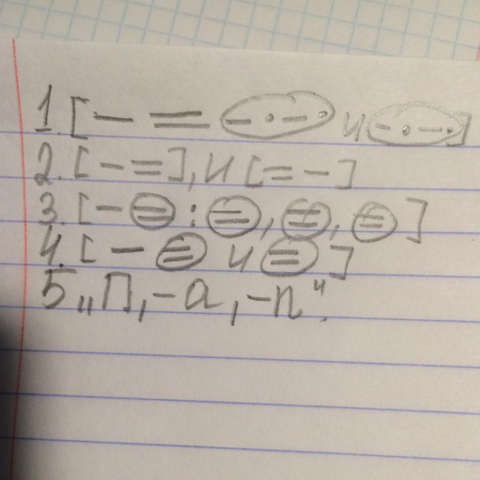 1. [— = (— · — ·) и (— · — ·)]
2. [— =], и [= —]
3. [— (=) : (=), (=), (=)]
4. [— (=) и (=)]
5 „П, — а, — п“.